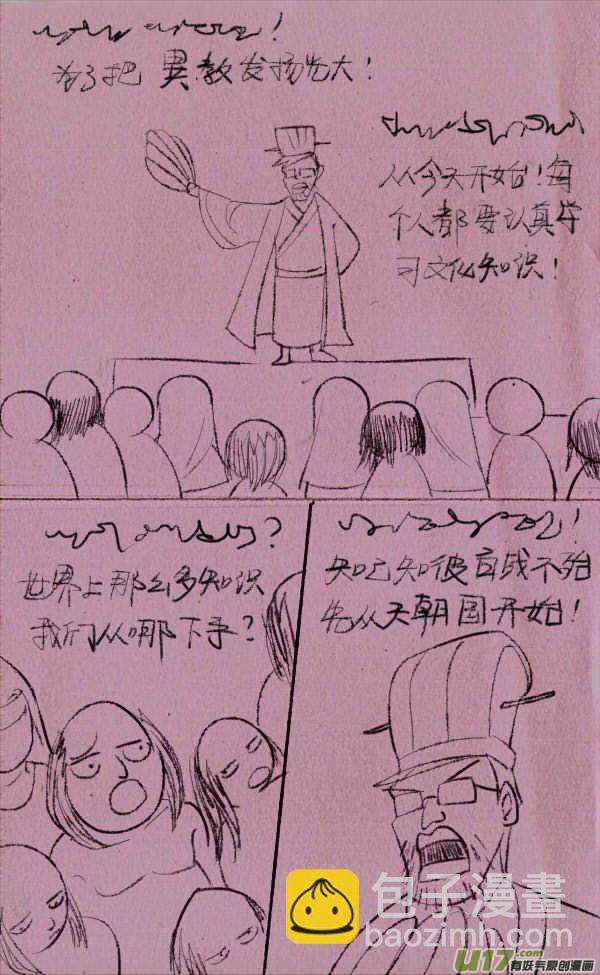 为了把異教发扬光大!
从今天开始!每
个人都要认真学
习文化知识!
世界上那么多知识
我们从哪下手?
知己知彼百战不殆
先从天朝国开始!
包子漫畫
baozimh.com
U17.com
有妖气原创漫画